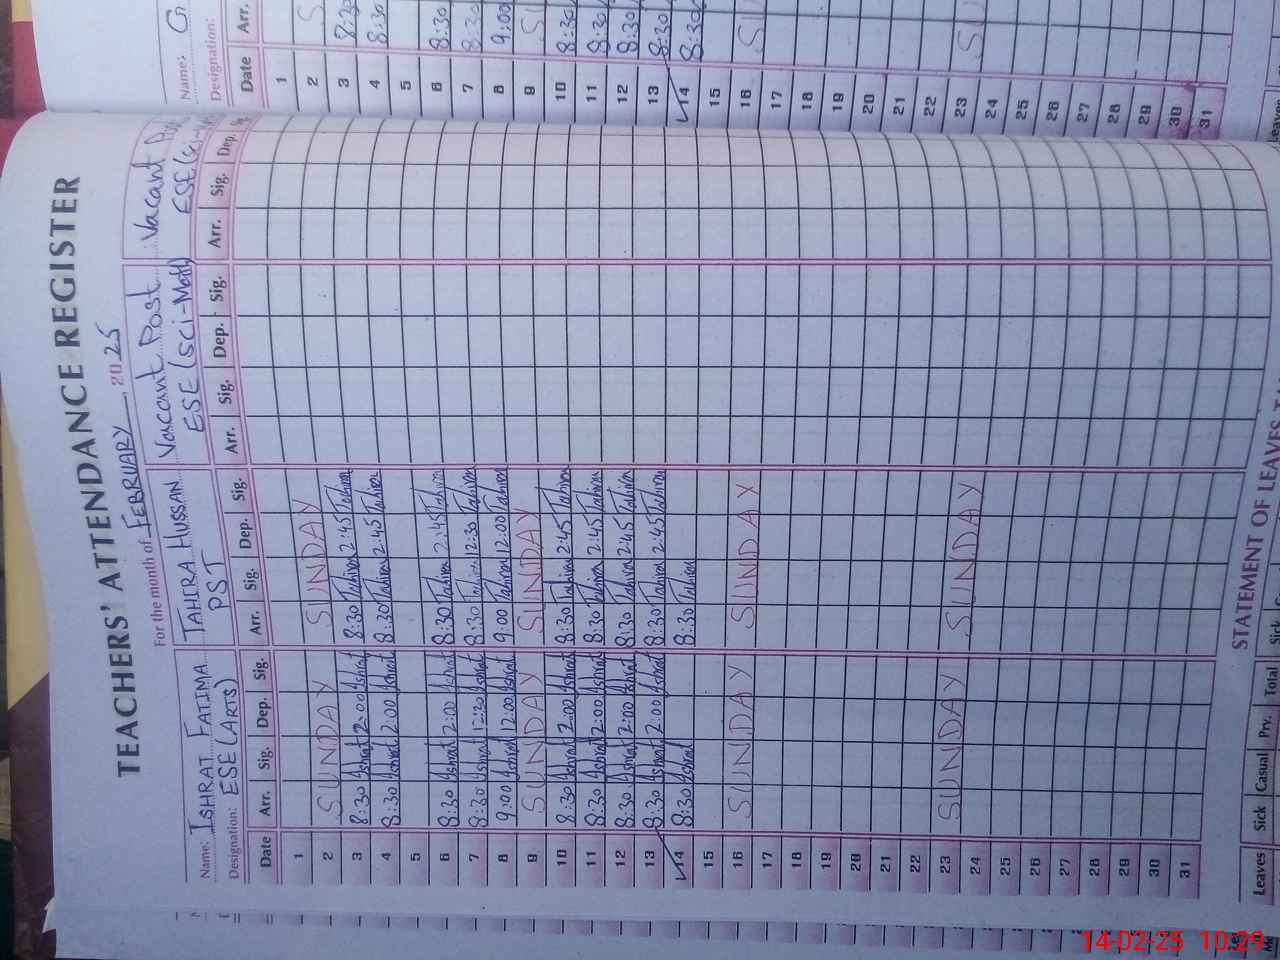 TEACHERS' ATTENDANCE REGISTER
For the month of FEBRUARY, 2025
Name: ISHRAT FATIMA TAHIRA HUSSAN Vaccant Post Vacant
Designation: ESE (ARTS) PST ESE (Sci-Math) ESE
Date Arr. Sig. Dep. Sig. Arr. Sig. Dep. Sig. Arr. Sig. Dep. Sig. Arr. Sig. Dep.
1
2 SUNDAY SUNDAY
3 8:30 Ishrat 2:00 Ishrat 8:30 Tahira 2:45 Tahira
4 8:30 Ishrat 2:00 Ishrat 8:30 Tahira 2:45 Tahira
5
6 8:30 Ishrat 2:00 Ishrat 8:30 Tahira 2:45 Tahira
7 8:30 Ishrat 12:30 Ishrat 8:30 Tahira 12:30 Tahira
8 9:00 Ishrat 12:00 Ishrat 9:00 Tahira 12:00 Tahira
9 SUNDAY SUNDAY
10 8:30 Ishrat 2:00 Ishrat 8:30 Tahira 2:45 Tahira
11 8:30 Ishrat 2:00 Ishrat 8:30 Tahira 2:45 Tahira
12 8:30 Ishrat 2:00 Ishrat 8:30 Tahira 2:45 Tahira
13 8:30 Ishrat 2:00 Ishrat 8:30 Tahira 2:45 Tahira
14 8:30 Ishrat 8:30 Tahira
15
16 SUNDAY SUNDAY
17
18
19
20
21
22
23 SUNDAY SUNDAY
24
25
26
27
28
29
30
31
STATEMENT OF LEAVES
Leaves Sick Casual Prv. Total Sick
Name:
Designation:
Date Arr.
1
2
3 8:30
4 8:30
5
6 8:30
7 8:30
8 9:00
9
10 8:30
11 8:30
12 8:30
13 8:30
14 8:30
15
16
17
18
19
20
21
22
23
24
25
26
27
28
29
30
31
Leaves
14-02-25 10:29